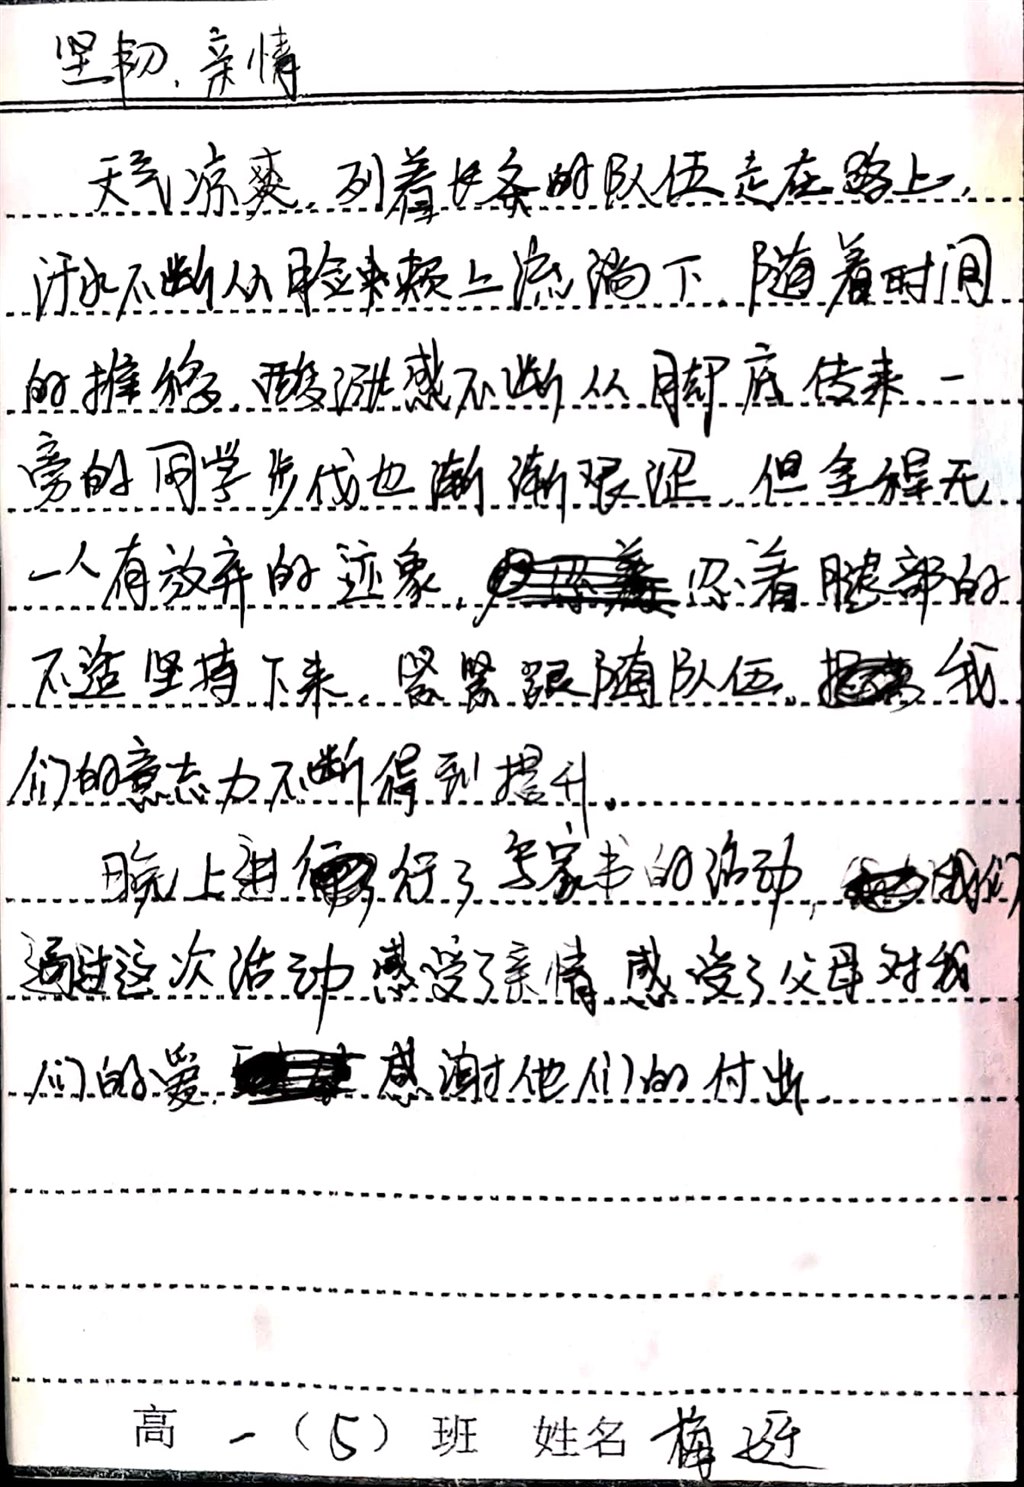 坚韧、亲情
天气凉爽,列着长条的队伍走在路上,
汗水不断从脸颊上流淌下,随着时间
的推移,酸涨感不断从脚底传来一
旁的同学步伐也渐渐艰涩,但全程无
一人有放弃的迹象,忍着腿部的
不适坚持下来,紧紧跟随队伍。我
们的意志力不断得到提升。
晚上进行了写家书的活动,我们
通过这次活动感受了亲情,感受了父母对我
们的爱,感谢他们的付出。
高一(5)班 姓名 梅